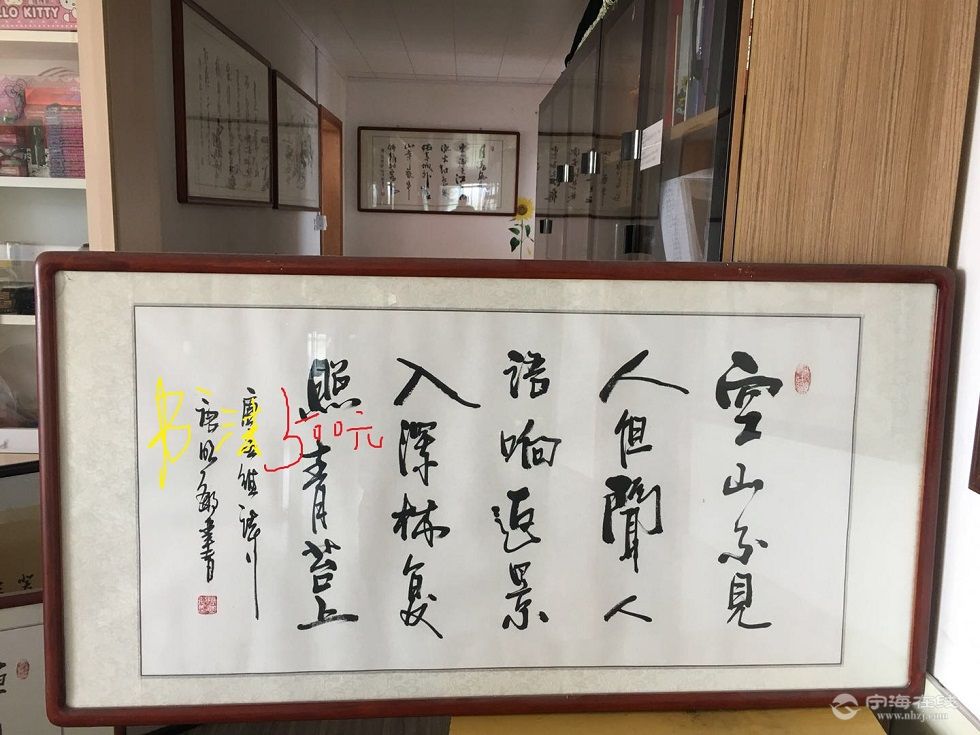 空山不見
人但聞人
語响返景
入深林复
照青苔上
唐王維詩
唐明敏書
书法
500元
HELLO KITTY
宁海在线
www.nhzj.com